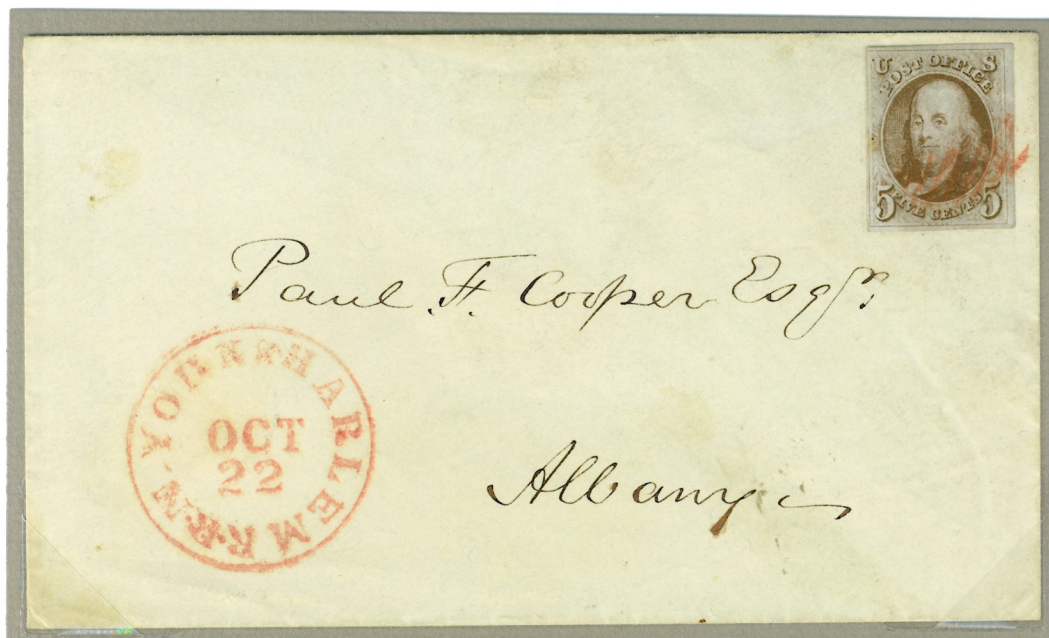 U S
POST OFFICE
5 FIVE CENTS 5
Paul F. Cooper Esqr.
N. YORK & HARLEM R.R.
OCT
22
Albany